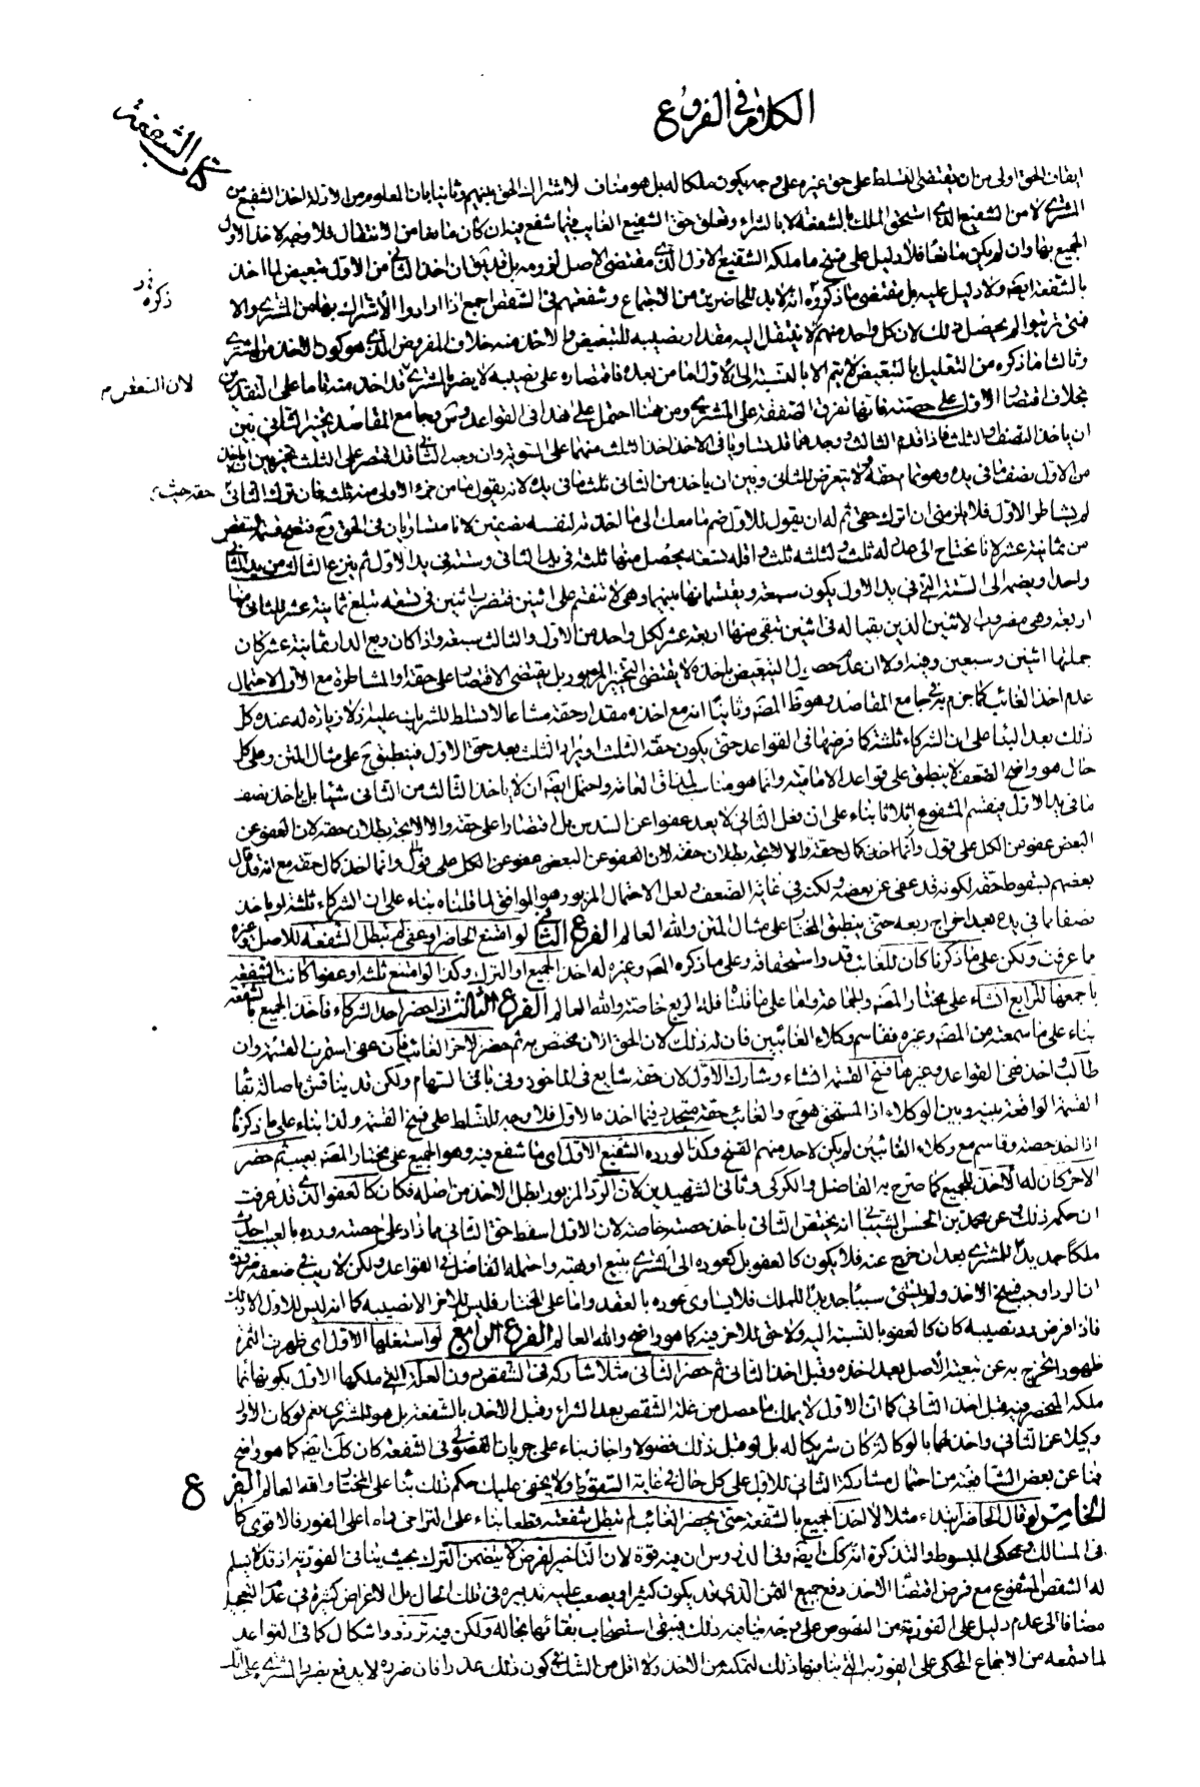 الكلام في الفروع
كتاب الشفعة
ايقان الحق اولى من ان يقتضى التسلط على حق غيره على وجه يكون ملكا له بل هو مناف لاشتراك الحق بينهم وثانيا بان المعلوم من الادلة اخذ الشفيع من
المشتري لا من الشفيع الذي استحق الملك بالشفعة لا بالشراء وتعلق حق الشفيع الغايب فيما شفع فيه ان كان مانعا من الانتقال فلا وجه لاخذ الاول
الجميع بها وان لم يكن مانعا فلا دليل على فسخ ما ملكه الشفيع الاول الذي مقتضى الاصل لزومه بل قد يق ان اخذ الثاني من الاول تبعيض لما اخذ
بالشفعة ايضا ولا دليل عليه بل مقتضى ما ذكروه انه لا بد للحاضرين من الاجتماع وشفعتهم في الشقص اجمع اذا ارادوا الاشتراك بها من المشتري والا
ذكره
فمتى ترتبوا لم يحصل ذلك لان كل واحد منهم لا ينتقل اليه مقدار نصيبه للتبعيض والاخذ منه خلاف المفروض الذي هو كون الاخذ من المشتري
وثالثا ما ذكره من التعليل بالتبعيض لا يتم الا بالنسبة الى الاول اما من بعده فاقتصاره على نصيبه لا يضر بالمشتري قد اخذ منه تاما على التقديرين
لان الشقص م
بخلاف اقتصار الاول على حصته فانها تفرق الصفقة على المشتري ومن هنا احتمل على هذا في القواعد وس وجامع المقاصد تخيير الثاني بين
ان ياخذ النصف والثلث فاذا قدم الثالث ووجدهما قد تساويا في الاخذ اخذ الثلث منهما على السوية وان وجد الثاني قد اقتصر على الثلث تخير بين ان ياخذ
من الاول نصف ما في يده وهو تمام حقه ولا يتعرض للثاني وبين ان ياخذ من الثاني ثلث ما في يده لانه يقول ما من جزء الا ولي منه ثلثه فان ترك الثاني
حقه حيث
لم يشاطر الاول فلا يلزمني ان اترك حقي ثم له ان يقول للاول ضم ما معك الى ما اخذته لنقسمه نصفين لانا متساويان في الحق وح فتصح قسمة الشقص
من ثمانية عشر لانا نحتاج الى عدد له ثلث ولثلثه ثلث واقله تسعة يحصل منها ثلثة في يد الثاني وستة في يد الاول ثم ينزع الثالث من يد الثاني
واحدا ويضمه الى الستة التي في يد الاول يكون سبعة ويقتسمانها بينهما وهي لا تنقسم على اثنين فنضرب اثنين في تسعة تبلغ ثمانية عشر للثاني منها
اربعة وهي مضروب الاثنين الذين بقيا له في اثنين تبقى منها اربعة عشر لكل واحد من الاول والثالث سبعة واذا كان ربع الدار ثمانية عشر كان
جملتها اثنين وسبعين وفيه اولا ان عدم حصول التبعيض باخذه لا يقتضى التخيير المزبور بل يقتضى الاقتصار على حقه او المشاطرة مع الاول لاحتمال
عدم اخذ الغائب كما جزم به في جامع المقاصد وهو ظ المصنف وثانيا انه مع اخذه مقدار حقه مشاعا لا تسلط للشريك عليه اذ لا زيادة له عنده كل
ذلك بعد البناء على ان الشركاء ثلثة كما فرضها في القواعد حتى يكون حقه الثلث او يراد الثلث بعد حق الاول فينطبق ح على مثال المتن وعلى كل
حال هو واضح الضعف لا ينطبق على قواعد الامامية وانما هو مناسب لمذاق العامة واحتمل ايضا ان لا ياخذ الثالث من الثاني شيئا بل ياخذ نصف
ما في يد الاول فيقسم المشفوع اثلاثا بناء على ان فعل الثاني لا يعد عفوا عن السدس بل اقتصارا على حقه والا لاتجه بطلان حقه لان العفو عن
البعض عفو عن الكل على قول وانما اخذ كمال حقه والا لاتجه بطلان حقه لان العفو عن البعض عفو عن الكل على قول وانما اخذ كمال حقه مع انه قد قال
بعضهم بسقوط حقه لكونه قد عفى عن بعضه ولكنه في غاية الضعف ولعل الاحتمال المزبور هو الموافق لما قلناه بناء على ان الشركاء ثلثة او ياخذ
نصف ما في يده بعد اخراج ربعه حتى ينطبق المختار على مثال المتن والله العالم الفرع الثاني لو امتنع الحاضر او عفى لم تبطل الشفعة للاصل وغيره
ما عرفت ولكن على ما ذكرنا كان للغائب قدر استحقاقه وعلى ما ذكره المصنف وغيره له اخذ الجميع او الترك وكذا لو امتنع ثلثة او عفوا كانت الشفعة
باجمعها للرابع انشاء على مختار المصنف والجماعة واما على ما قلنا فله الربع خاصة والله العالم الفرع الثالث اذا حضر احد الشركاء فاخذ الجميع بالشفعة
بناء على ما سمعته من المصنف وغيره فقاسم وكلاء الغائبين فان له ذلك لان الحق الان مختص به ثم حضر الاخر الغائب فان عفى استمرت القسمة وان
طالب واخذ ففي القواعد وغيرها فسخ القسمة انشاء وشارك الاول لان حقه شايع في الماخوذ وفي باقي السهام ولكن قد يناقش باصالة بقاء
القسمة الواقعة بينه وبين الوكلاء اذ المستحق هو ح والغائب حقه متجدد فيما اخذ من الاول فلا وجه للتسلط على فسخ القسمة وكذا بناء على ما ذكرنا
اذا اخذ حصته وقاسم مع وكلاء الغائبين لم يكن لاحد منهم الفسخ وكذا لو رده الشفيع الاول اى ما شفع فيه وهو الجميع على مختار المصنف بعيب ثم حضر
الاخر كان له الاخذ للجميع كما صرح به الفاضل والكركي وثاني الشهيدين لان الرد المزبور ابطل الاخذ من اصله فكان كالعفو الذي قد عرفت
ان حكمه ذلك وعن محمد بن الحسن الشيباني انه يختص الثاني باخذ حصته خاصة لان الاول اسقط حق الثاني عما زاد على حصته ورده بالعيب احداث
ملكا جديدا للمشتري بعد ان خرج عنه فلا يكون كالعفو بل كعوده الى المشتري ببيع او هبة واحتمله الفاضل في القواعد ولكن لا ريب في ضعفه ضرورة
ان الرد اوجب فسخ الاخذ ولم ينشئ سببا جديدا للملك فلا يساوي عوده بالعقد واما على المختار فليس للاخر الا نصيبه كما انه ليس للاول الا ذلك
فاذا فرض رد نصيبه كان كالعفو بالنسبة اليه ولا حق للاخر فيه كما هو واضح والله العالم الفرع الرابع لو استغلها الاول اى ظهرت الثمرة
ظهورا تخرج به عن تبعية الاصل بعد اخذه وقبل اخذ الثاني ثم حضر الثاني مثلا شاركه في الشقص دون الغلة التي ملكها الاول بكونها نماء
ملكه المختص به قبل اخذ الثاني كما ان الاول لا يملك ما حصل من غلة الشقص بعد الشراء وقبل الاخذ بالشفعة بل هو للمشتري نعم لو كان الاول
وكيلا عن الثاني واخذ لهما بالوكالة كان شريكا له بل لو فعل ذلك فضولا واجاز بناء على جريان الفضولي في الشفعة كان كك ايضا كما هو واضح
فما عن بعض الشافعية من احتمال مشاركة الثاني للاول على كل حال في غاية السقوط ولا يخفى عليك حكم ذلك بناء على المختار والله العالم الفرع
ع
الخامس لو قال الحاضر ابتداء مثلا لا اخذ الجميع بالشفعة حتى يحضر الغائب لم تبطل شفعته قطعا بناء على التراخي واما على الفور فالاقوى كما
في المسالك ومحكي المبسوط والتذكرة انه كك ايضا وفي الدروس ان فيه قوة لان التاخير لغرض لا يتضمن الترك بحيث ينافي الفورية اذ قد لا يسلم
له الشقص المشفوع مع فرض اقتضاء الاخذ دفع جميع الثمن الذي قد يكون كثيرا ويصعب عليه تدبيره في تلك الحال بل الاغراض كثيرة في عدم التعجيل
مضافا الى عدم دليل على الفورية من النصوص على وجه ينافيه ذلك فيبقى استصحاب بقائها بحاله ولكن فيه تردد واشكال كما في القواعد
لما سمعته من الاجماع المحكي على الفورية التي ينافيها ذلك لتمكنه من الاخذ ولا اقل من الشك في كون ذلك عذرا فان ضرره لا يدفع بضرر المشتري على انك